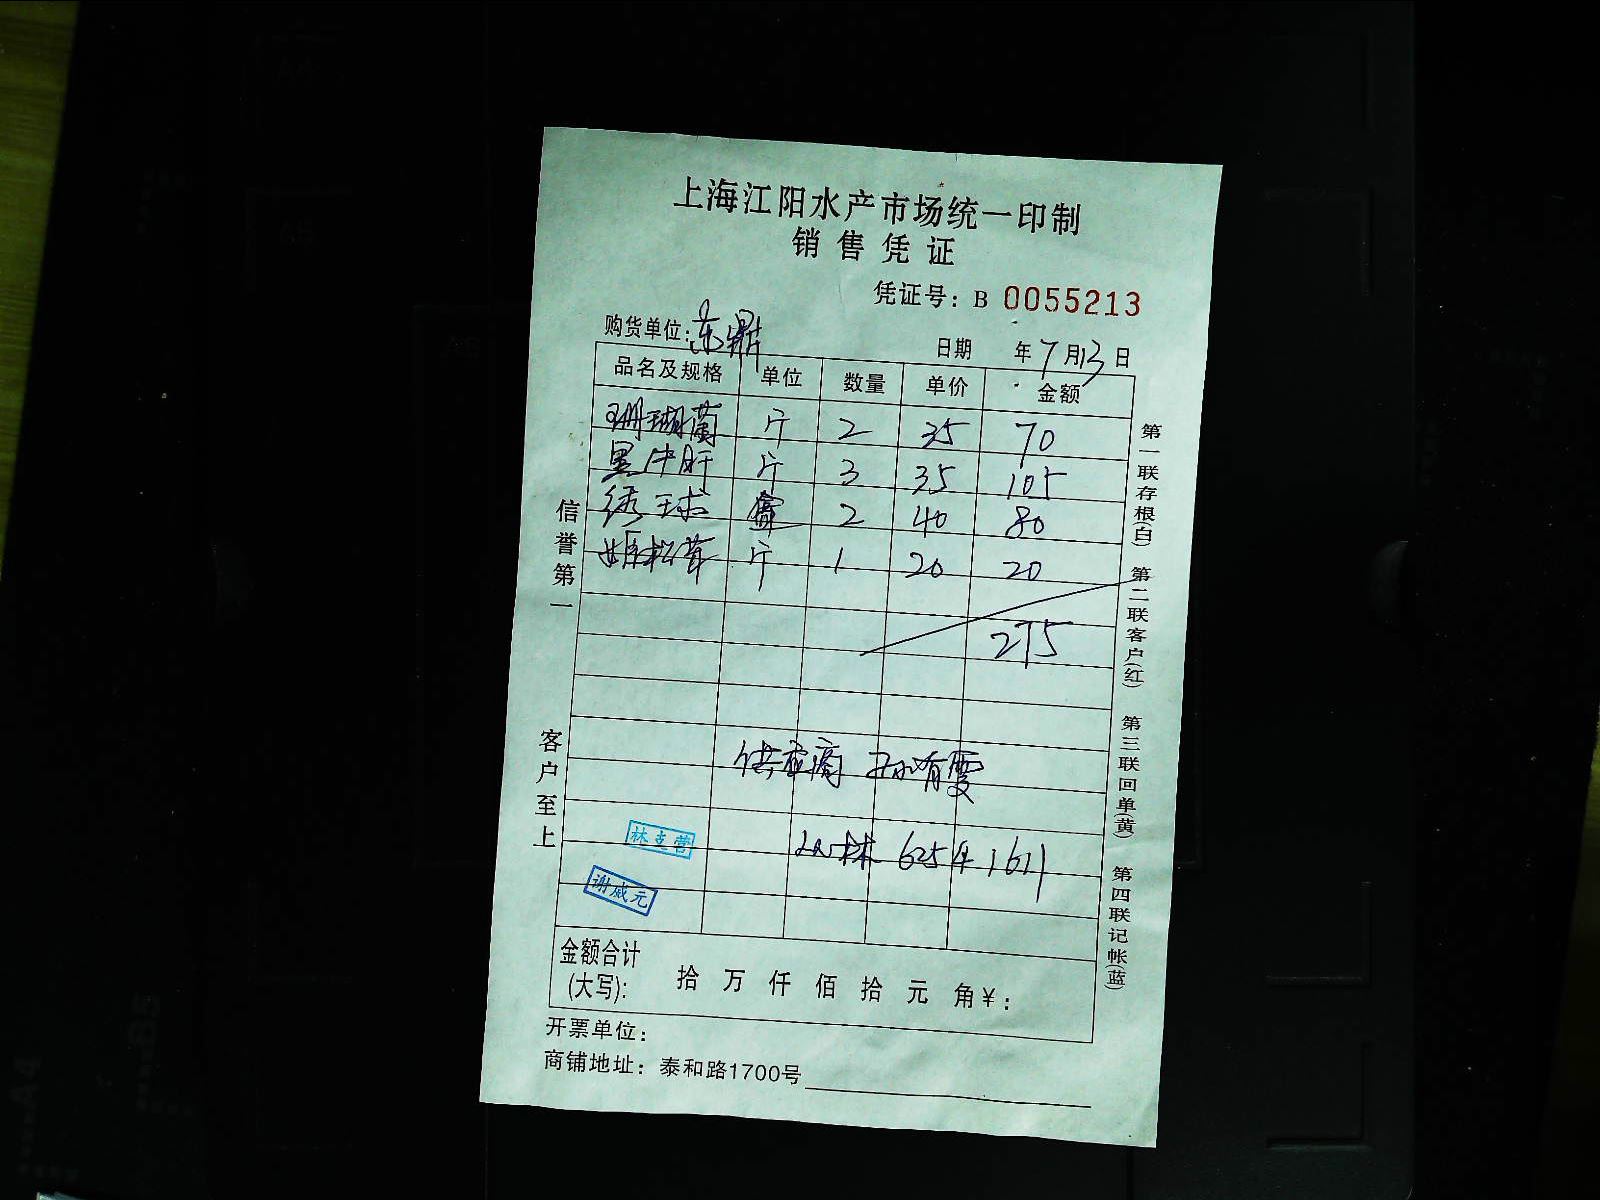 上海江阳水产市场统一印制
销售凭证
凭证号：B 0055213
购货单位：东鼎
日期 年7月13日
品名及规格 单位 数量 单价 金额
珊瑚菌 斤 2 35 70
黑牛肝 斤 3 35 105
绣球 2 40 80
姬松茸 斤 1 20 20
275
供应商 孙有霞
林 625 1611
林立营
谢成元
金额合计
(大写)： 拾 万 仟 佰 拾 元 角¥：
开票单位：
商铺地址：泰和路1700号
信誉第一
客户至上
第一联存根(白) 第二联客户(红) 第三联回单(黄) 第四联记帐(蓝)